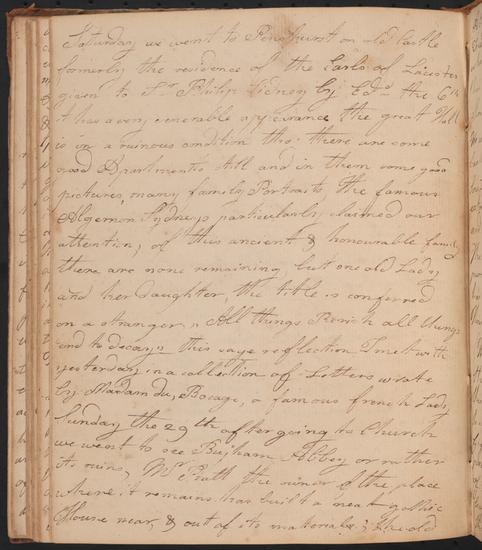 Saturday we went to Penshurst an old Castle
formerly the residence of the Earls of Leicester
given to Sr. Philip Sidney by Edd. the 6th
it has a very venerable appearance the great Hall
is in a ruinous condition tho' there are some
good Apartments still and in them some good
pictures, many family Portraits, the famous
Algernon Sydneys particularly claimed our
attention, of this ancient & honourable family
there are none remaining but one old Lady
and her daughter, the title is conferred
on a stranger, " All things Perish all things
end to decay," this sage reflection I met with
yesterday in a collection of Letters wrote
by Madam du, Bocage, a famous french Lady
Sunday the 29th after going to Church
we went to see Bayham Abbey or rather
its ruins, Mr. Pratt the owner of the place
where it remains has built a neat gothic
House near & out of its materials; the old